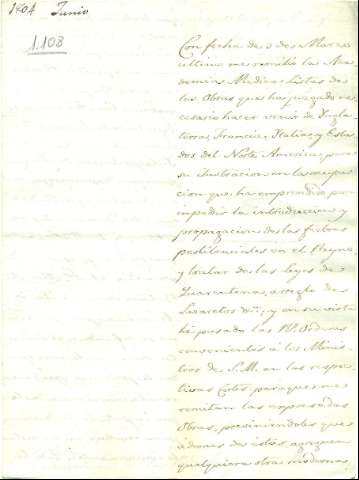 1804 Junio
1108
Con fecha de 3 de Marzo
ultimo me remitió la Aca-
demia Medica Listas de
las Obras que ha juzgado ne-
cesario hacer venir de Ingla-
terra, Francia, Italia, y Esta-
dos del Norte America, para
su ilustracion en la ocupa-
cion que ha emprendido para
impedir la introduccion y
propagacion de las fiebres
pestilenciales en el Reyno,
y tratar de las Leyes de
Quarentenas, arreglo de
Lazaretos &c; y en su vista
hé pasado las Rs. Ordenes
convenientes á los Minis-
tros de S.M. en las respec-
tivas Cortes, para que me
remitan las expresadas
Obras, previniendoles que
á demas de éstas agreguen
qualquiera otras modernas